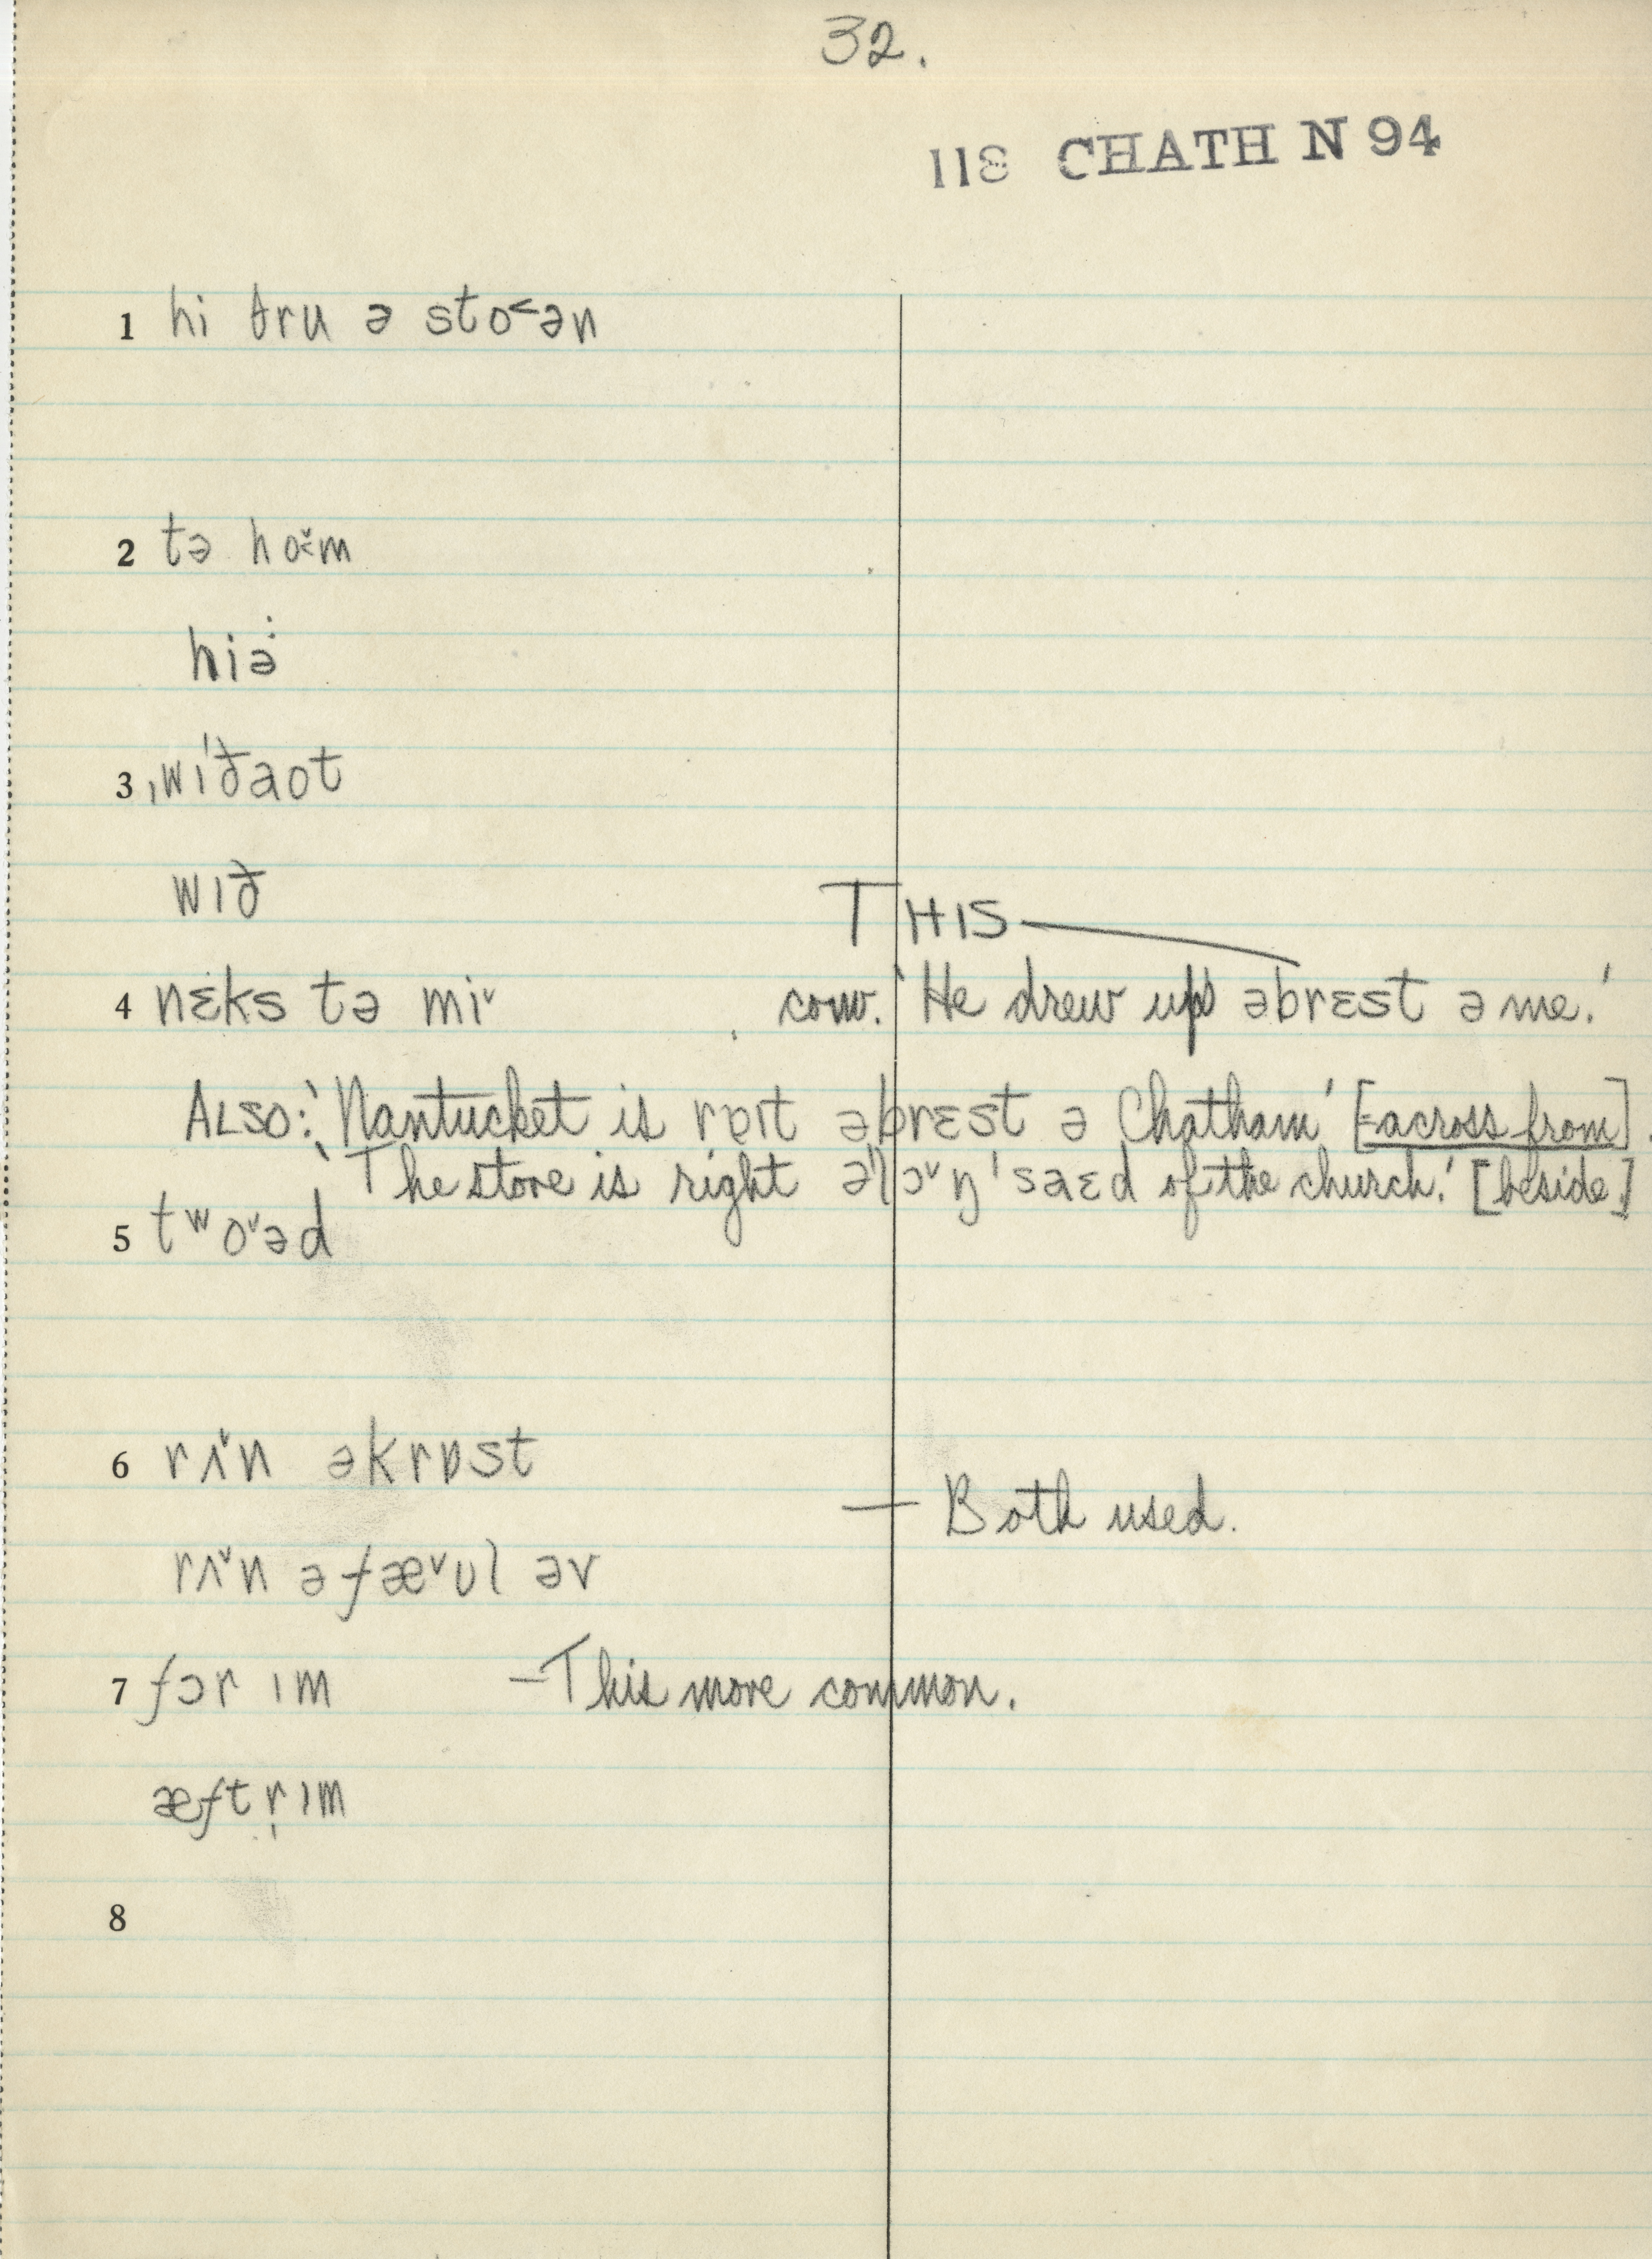 32.
118 CHATH N 94
1 hi θru ə sto˂ən
2 tə ho˂̌m
hiə:
3 ˌwɪˈðaot
wɪð
THIS
4 nɛks tə miˇ , conv. 'He drew up əbrɛst ə me.'
ALSO: 'Nantucket is rɒɪt əbrɛst ə Chatham' [=across from].
'The store is right əˈlɔˇŋˈsaɛd of the church.' [beside]
5 tʷoˇəd
6 rʌˇn əkrɒst
— Both used.
rʌˇn əfæˇʊl əv
7 fɔr ɪm – This more common.
æftr̩ɪm
8